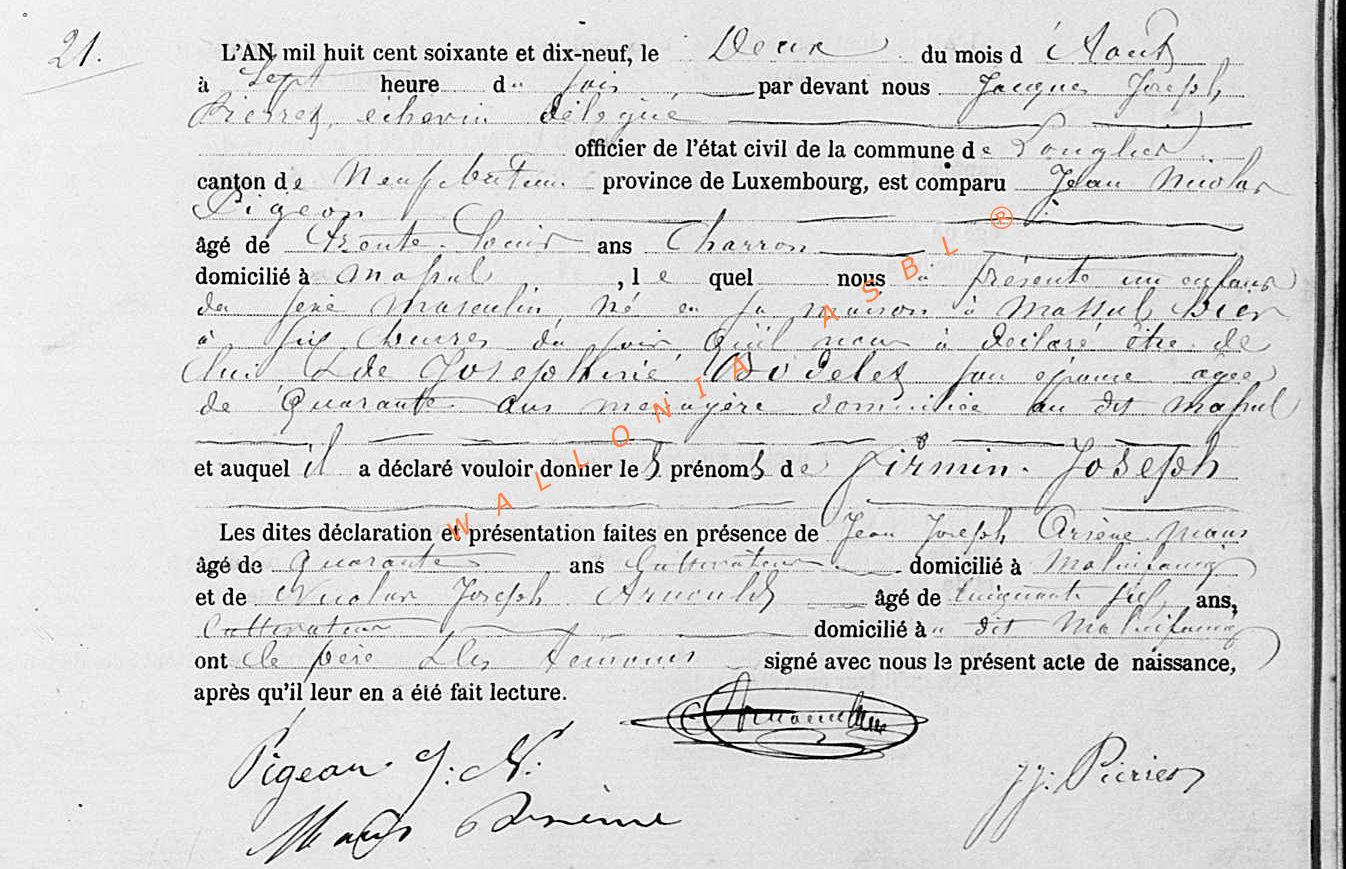 21.
L'AN mil huit cent soixante et dix-neuf, le Deux du mois d'Août
à Sept heure du soir par devant nous Jacques Joseph
Pierret, échevin délégué
officier de l'état civil de la commune de Longlier
canton de Neufchâteau province de Luxembourg, est comparu Jean Nicolas
Pigeon
âgé de Trente ans Charron
domicilié à Massul, le quel nous a présenté un enfant
du sexe masculin, né en sa maison à Massul, hier
à six heures du soir qu'il nous à déclaré être de
lui & de Joséphine Bodelet son épouse agée
de Quarante ans menagère domiciliée au dit Massul
et auquel il a déclaré vouloir donner les prénoms de Firmin. Joseph
Les dites déclaration et présentation faites en présence de Jean Joseph Arsène Maus
âgé de Quarante ans Cultivateur domicilié à Molinfaing
et de Nicolas Joseph Arnould âgé de cinquante six ans,
Cultivateur domicilié au dit Molinfaing
ont le père & les témoins signé avec nous le présent acte de naissance,
après qu'il leur en a été fait lecture.
Pigeon J. N.
Maus Arsène
J J. Pierret
WALLONIA ASBL ®